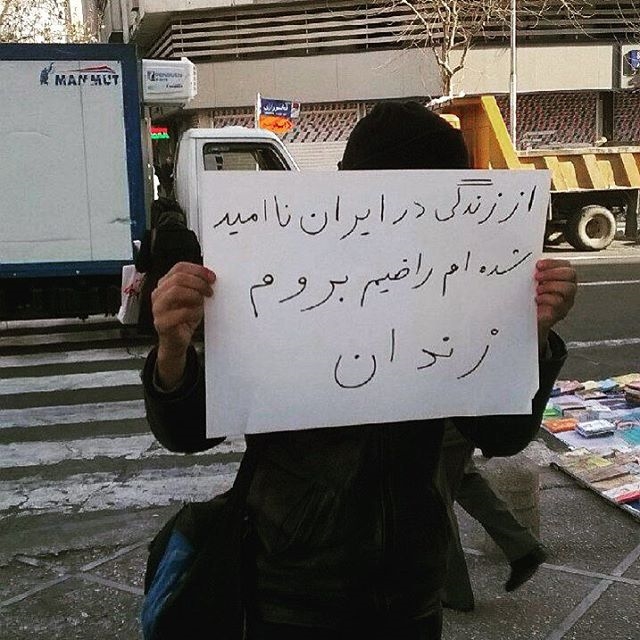 MAMMUT
از زندگی در ایران ناامید
شده ام راضیم بروم
زندان